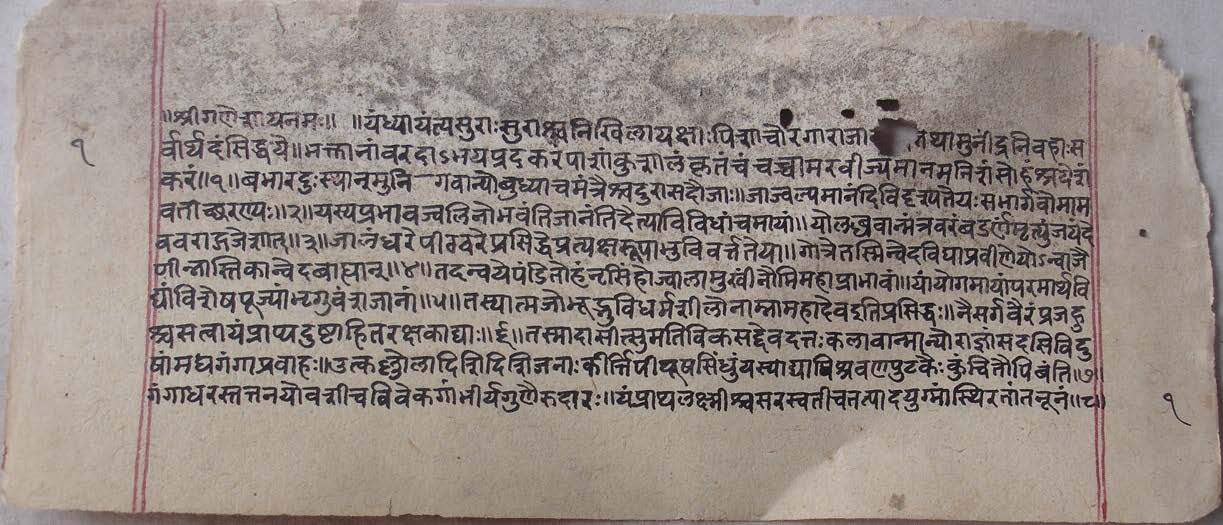 ॥श्रीगणेशायनमः॥ ॥यंध्यायंत्यसुराःसुराश्चनिखिलायक्षाःपिशाचोरगाराजा तथामुनींद्रनिवहाःस
र्वार्थदंसिद्धये॥भक्तानांवरदाऽभयप्रदकरंपाशांकुशालंकृतंचंचच्चामरवीज्यमानमनिशंसोहंश्रयेशं
करं॥१॥बभारदुःस्थानमुनि गवान्योबुध्याचमंत्रैश्चदुरासदौजाः॥जाज्वल्यमानंदिविदृश्यतेयःसभार्गवोमाम
वताच्छरण्यः॥२॥यस्यप्रभावज्वलिनोभवंतिजानंतिदैत्याविविधांचमायां॥योलब्धवान्मंत्रवरंषडर्णंमृत्युंजयंदे
ववराद्भजेशात्॥३॥जालंधरेपीठवरेप्रसिद्धेप्रत्यक्षरूपाभुविवर्त्ततेया॥गोत्रेतस्मिन्वेदविद्याप्रवीणेयोऽन्वाजै
षीन्नास्तिकान्वेदबाह्यान्॥४॥तदन्वयेपंडितोहंनृसिंहाज्वालामुखींनौमिमहाप्रभावां॥यांयोगमायांपरमार्थवि
द्यांविशेषपूज्यांभृगुवंशजानां॥५॥तस्यात्मजोभूद्भुविधर्मशीलोनाम्नामहादेवइतिप्रसिद्धः॥नैसर्गवैरंप्रजहु
श्चसत्वायंप्राप्यदुष्टाहितरक्षकाद्याः॥६॥तस्मादासीत्सुमतिविकसद्देवदत्तःकलावान्मान्योराज्ञांसदसिविदु
षांमधगंगाप्रवाहः॥उत्कृष्टोलादिशिदिशिजनाःकीर्त्तिपीयूषसिंधुंयस्याद्यापिश्रवणपुटकैःकुंचितौपिबंति॥७॥
गंगाधरस्तत्तनयोवशीचविवेकगांभीर्यगुणैरुदारः॥यंप्राप्यलक्ष्मीश्चसरस्वतीचतत्पादयुग्मांस्थिरतांतनूनं॥८॥
१
१